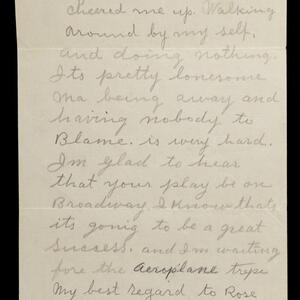 cheered me up. Walking
around by my self,
and doing nothing.
Its pretty lonesome
Ma being away and
having nobody to
Blame. is very hard.
I'm glad to hear
that your play be on
Broadway. I Know that
its gonig to be a great
Success. and I'm waiting
fore the aeroplane treps
My best regard to Rose